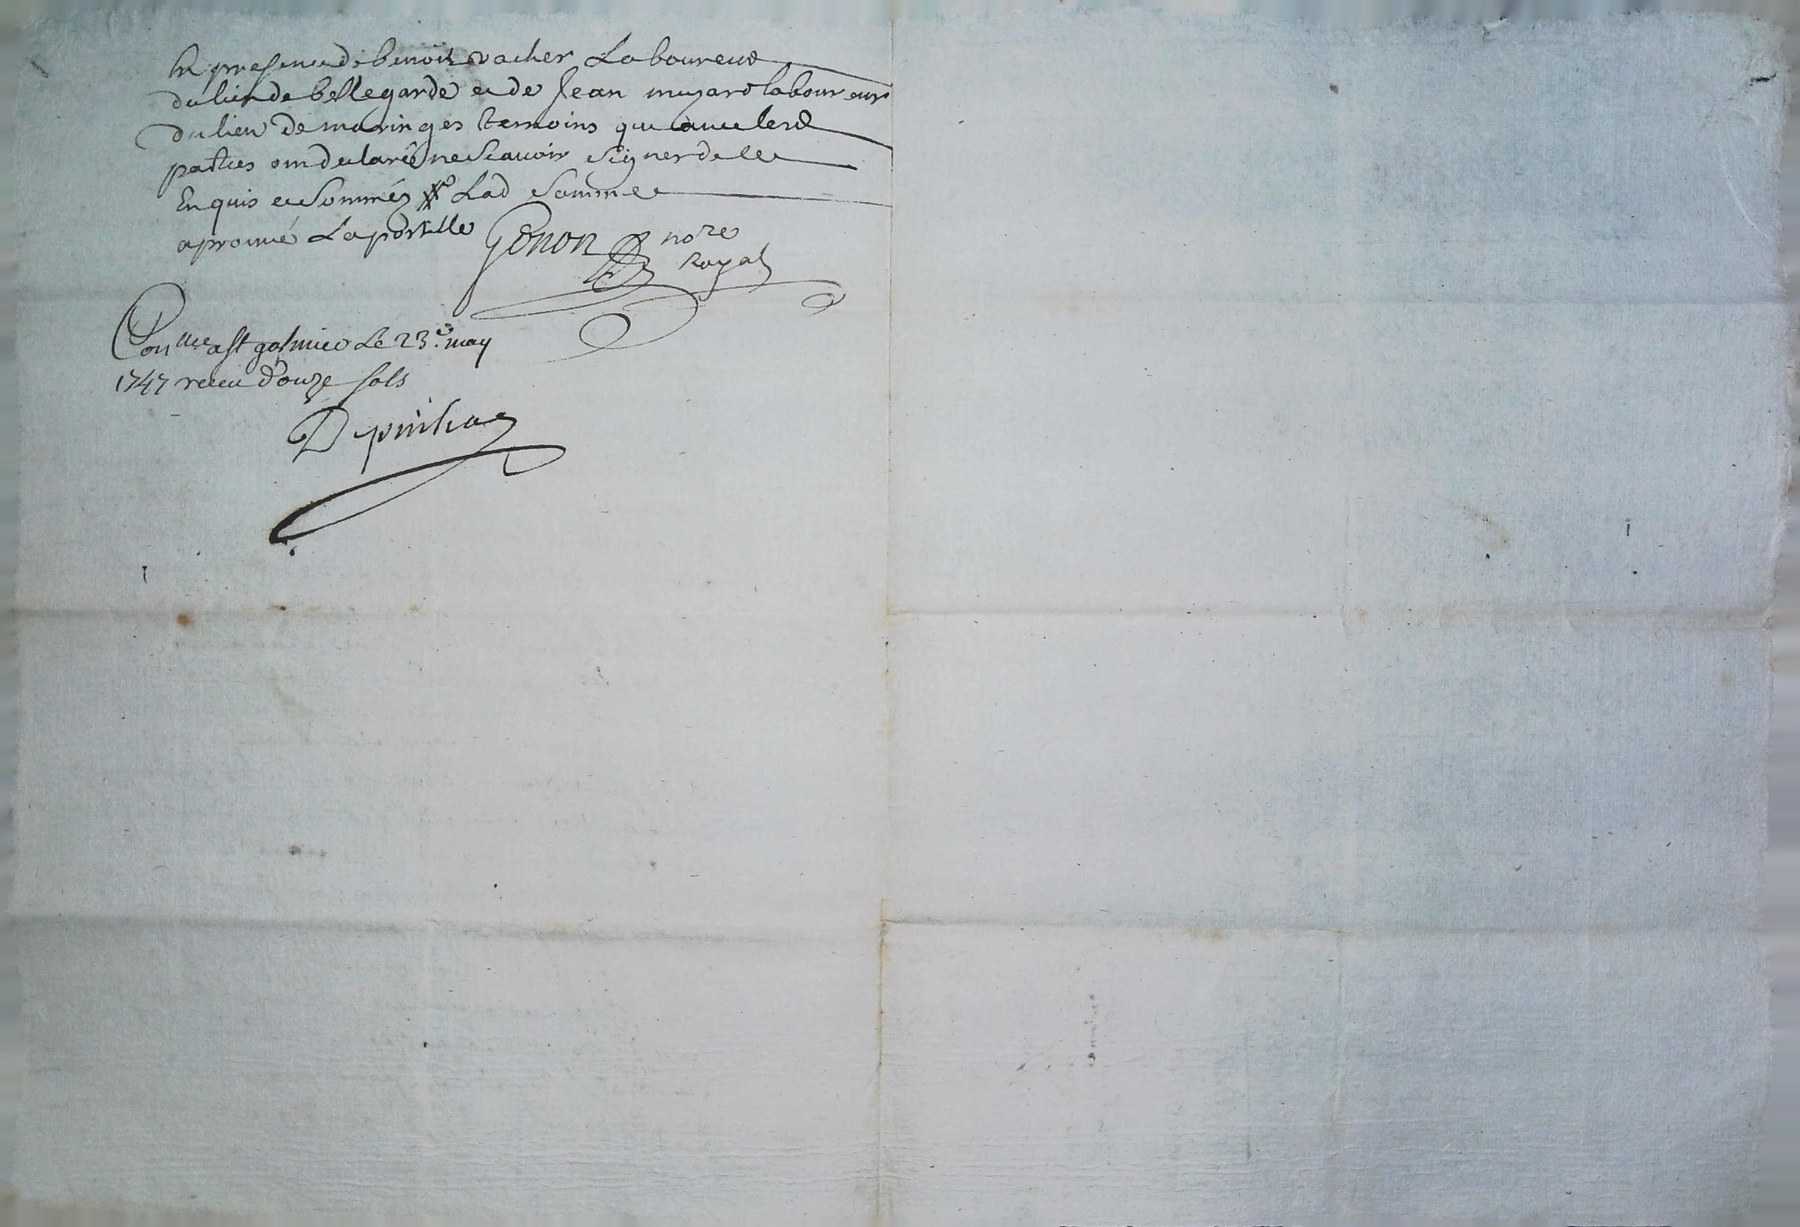 En presence de benoit vacher Laboureur
du lieu de bellegarde et de Jean muzard laboureur
du lieu de maringes temoins qui avec lesd
parties ont declaré ne scavoir signer de ce
Enquis et sommés Lad somme
aprouvé
Genon nore
Royal
Con lle a st galmier Le 23e may
1747 receu douze sols